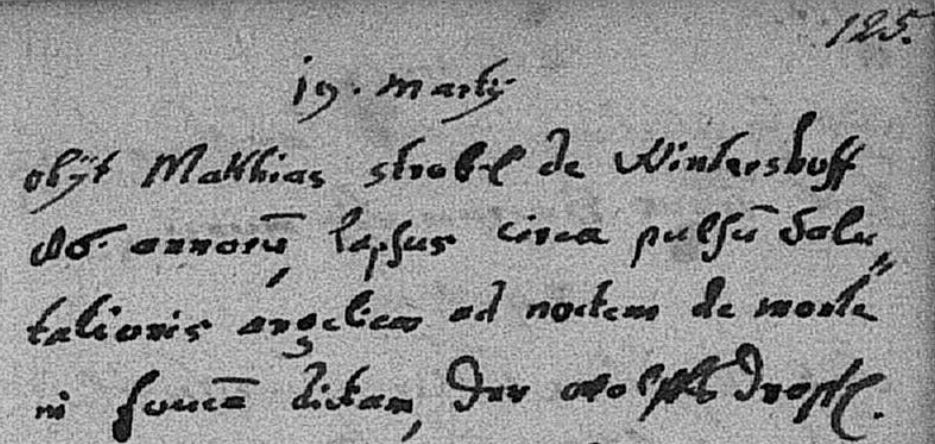 125.
19. Martÿ
obÿt Matthias strobel de Wintershoff
annorū, lapsus circa pulsū Salu„
tationis angelicae ad noctem de monte
in foueā dictam, der Wolffs